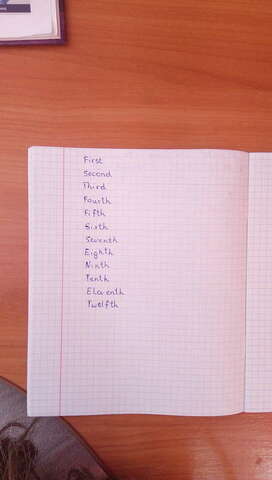 First
Second
Third
Fourth
Fifth
Sixth
Seventh
Eighth
Ninth
Tenth
Eleventh
Twelfth